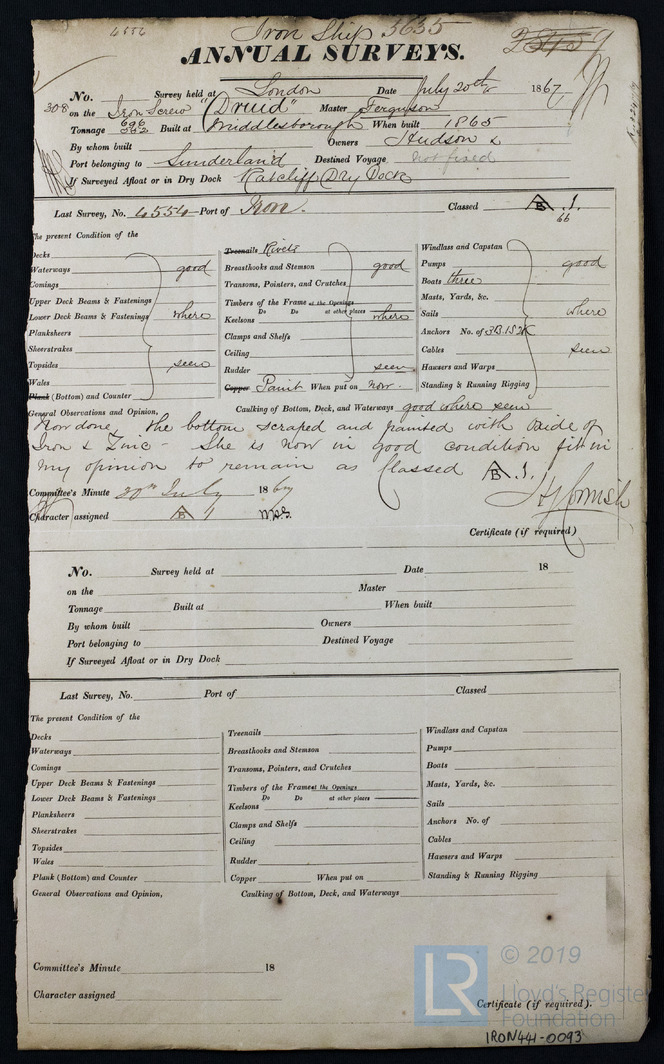 4556 Iron Ship 3655
ANNUAL SURVEYS.
No. Survey held at London Date July 20th 1867
308 on the Iron Screw "Druid" Master Ferguson
Tonnage 696 552 Built at Middlesborough When built 1865
By whom built Owners Hudson &
Port belonging to Sunderland Destined Voyage Not fixed
If Surveyed Afloat or in Dry Dock Ratcliff Dry Dock
Last Survey, No. 4554 Port of Iron. Classed A B .1. 66
The present Condition of the
Decks
Waterways good
Comings
Upper Deck Beams & Fastenings
Lower Deck Beams & Fastenings where
Planksheers
Sheerstrakes
Topsides seen
Wales
Plank (Bottom) and Counter
Treenails Rivets
Breasthooks and Stemson good
Transoms, Pointers, and Crutches
Timbers of the Frame at the Openings
Do Do at other places
Keelsons where
Clamps and Shelfs
Ceiling
Rudder seen
Copper Paint When put on now.
Windlass and Capstan
Pumps good
Boats three
Masts, Yards, &c.
Sails where
Anchors No. of 3B. 1S. 2K
Cables seen
Hawsers and Warps
Standing & Running Rigging
General Observations and Opinion, Caulking of Bottom, Deck, and Waterways good where seen
Now done, The bottom scraped and painted with Oxide of
Iron & Zinc - She is now in good condition fit in
my opinion to remain as Classed A B .1.
Committee's Minute 30th July 1867
Character assigned A B 1
Certificate (if required)
No. Survey held at Date 18
on the Master
Tonnage Built at When built
By whom built Owners
Port belonging to Destined Voyage
If Surveyed Afloat or in Dry Dock
Last Survey, No. Port of Classed
The present Condition of the
Decks
Waterways
Comings
Upper Deck Beams & Fastenings
Lower Deck Beams & Fastenings
Planksheers
Sheerstrakes
Topsides
Wales
Plank (Bottom) and Counter
Treenails
Breasthooks and Stemson
Transoms, Pointers, and Crutches
Timbers of the Frame at the Openings
Do Do at other places
Keelsons
Clamps and Shelfs
Ceiling
Rudder
Copper When put on
Windlass and Capstan
Pumps
Boats
Masts, Yards, &c.
Sails
Anchors No. of
Cables
Hawsers and Warps
Standing & Running Rigging
General Observations and Opinion, Caulking of Bottom, Deck, and Waterways
Committee's Minute 18
Character assigned
Certificate (if required).
LR © 2019
Lloyd's Register
Foundation
IRON441-0093